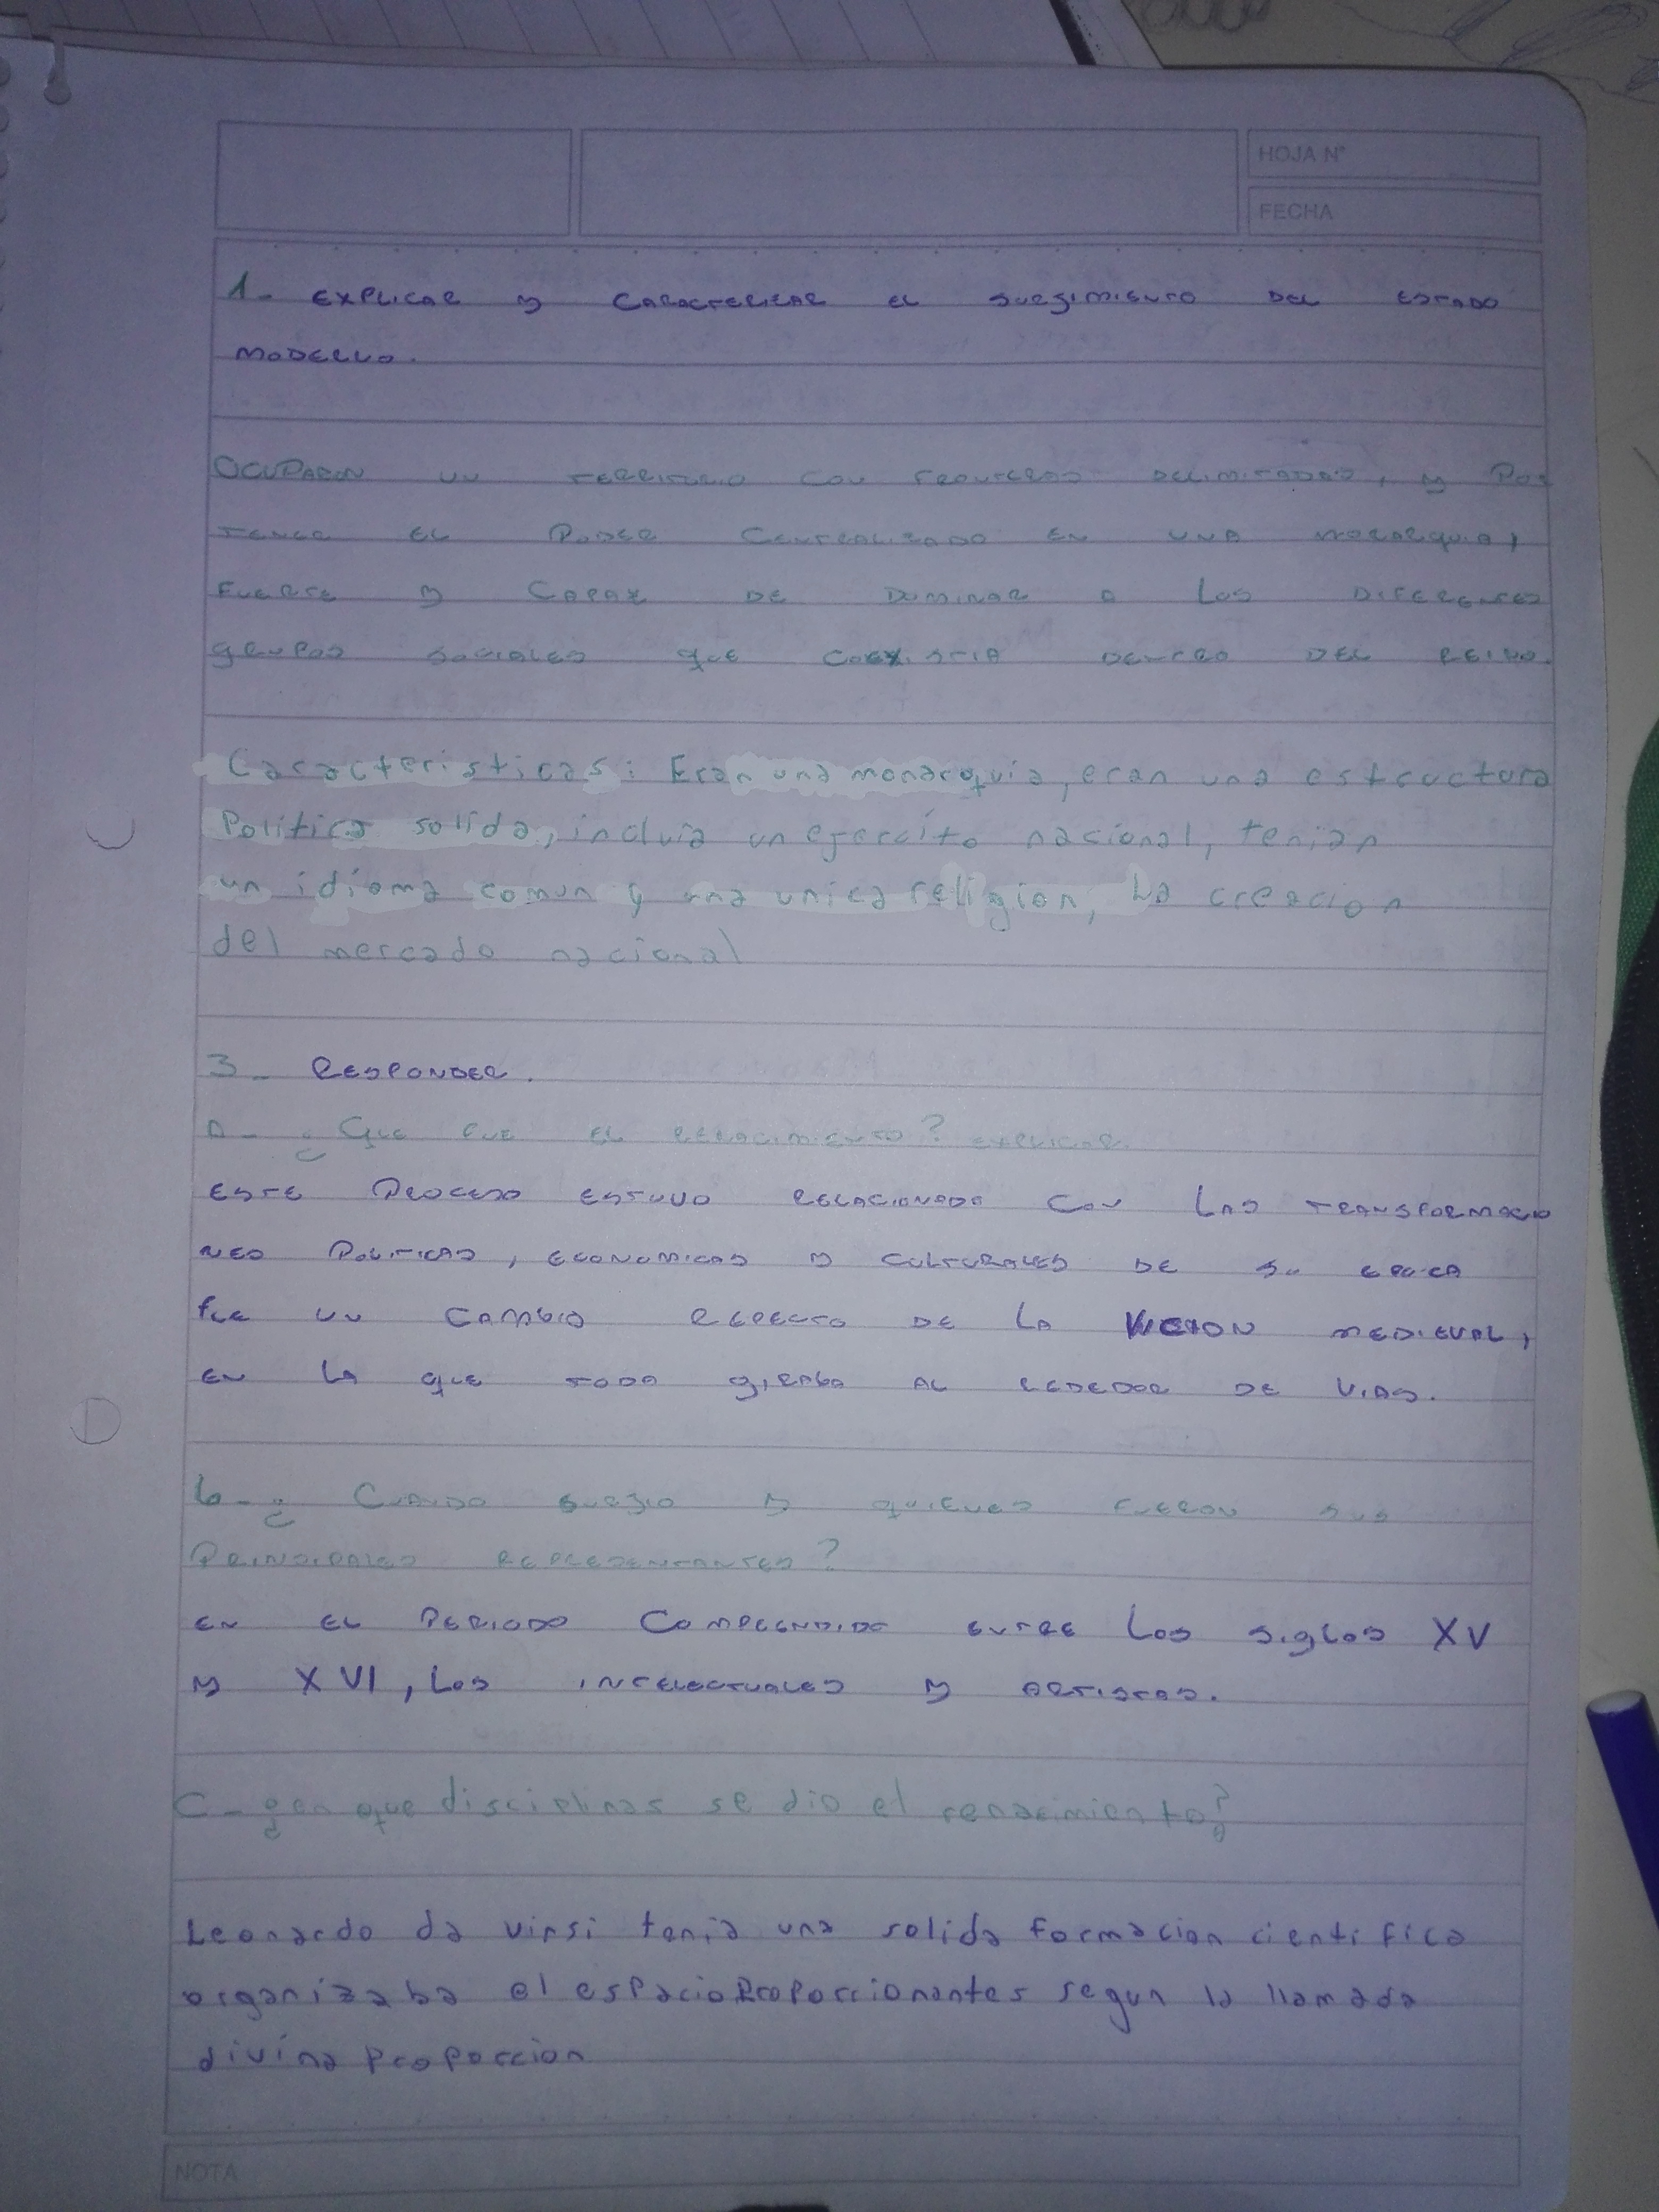 HOJA N°
FECHA
1- EXPLICAR Y CARACTERIZAR EL SURGIMIENTO DEL ESTADO
MODERNO.
OCUPARON UN TERRITORIO CON FRONTERAS DELIMITADAS, Y POR
TENER EL PODER CENTRALIZADO EN UNA
FUERTE Y CAPAZ DE DOMINAR A LOS DIFERENTES
GRUPOS SOCIALES QUE COEXISTIA DENTRO DEL REINO.
Caracteristicas: Eran una monarquia, eran una estructura
Politica solida, incluia un ejercito nacional, tenian
un idioma comun y una unica religion, La creacion
del mercado nacional
3- RESPONDER.
A- ¿QUE FUE EL RENACIMIENTO? EXPLICAR.
ESTE PROCESO ESTUVO RELACIONADO CON LAS TRANSFORMACIO
NES POLITICAS, ECONOMICAS Y CULTURALES DE SU EPOCA
fUE UN CAMBIO DE LA MEDIEVAL,
EN LA QUE TODO GIRABA AL REDEDOR DE
b- ¿CUANDO SURGIO Y QUIENES FUERON SUS
PRINSIPALES REPRESENTANTES?
EN EL PERIODO COMPRENDIDO ENTRE LOS SIGLOS XV
Y XVI, LOS INTELECTUALES Y ARTISTAS.
C- ¿en que disciplinas se dio el renacimiento?
Leonardo da vinsi tenia una solida formacion cientifica
organizaba el espacio Proporcionantes segun la llamada
divina Proporcion
NOTA